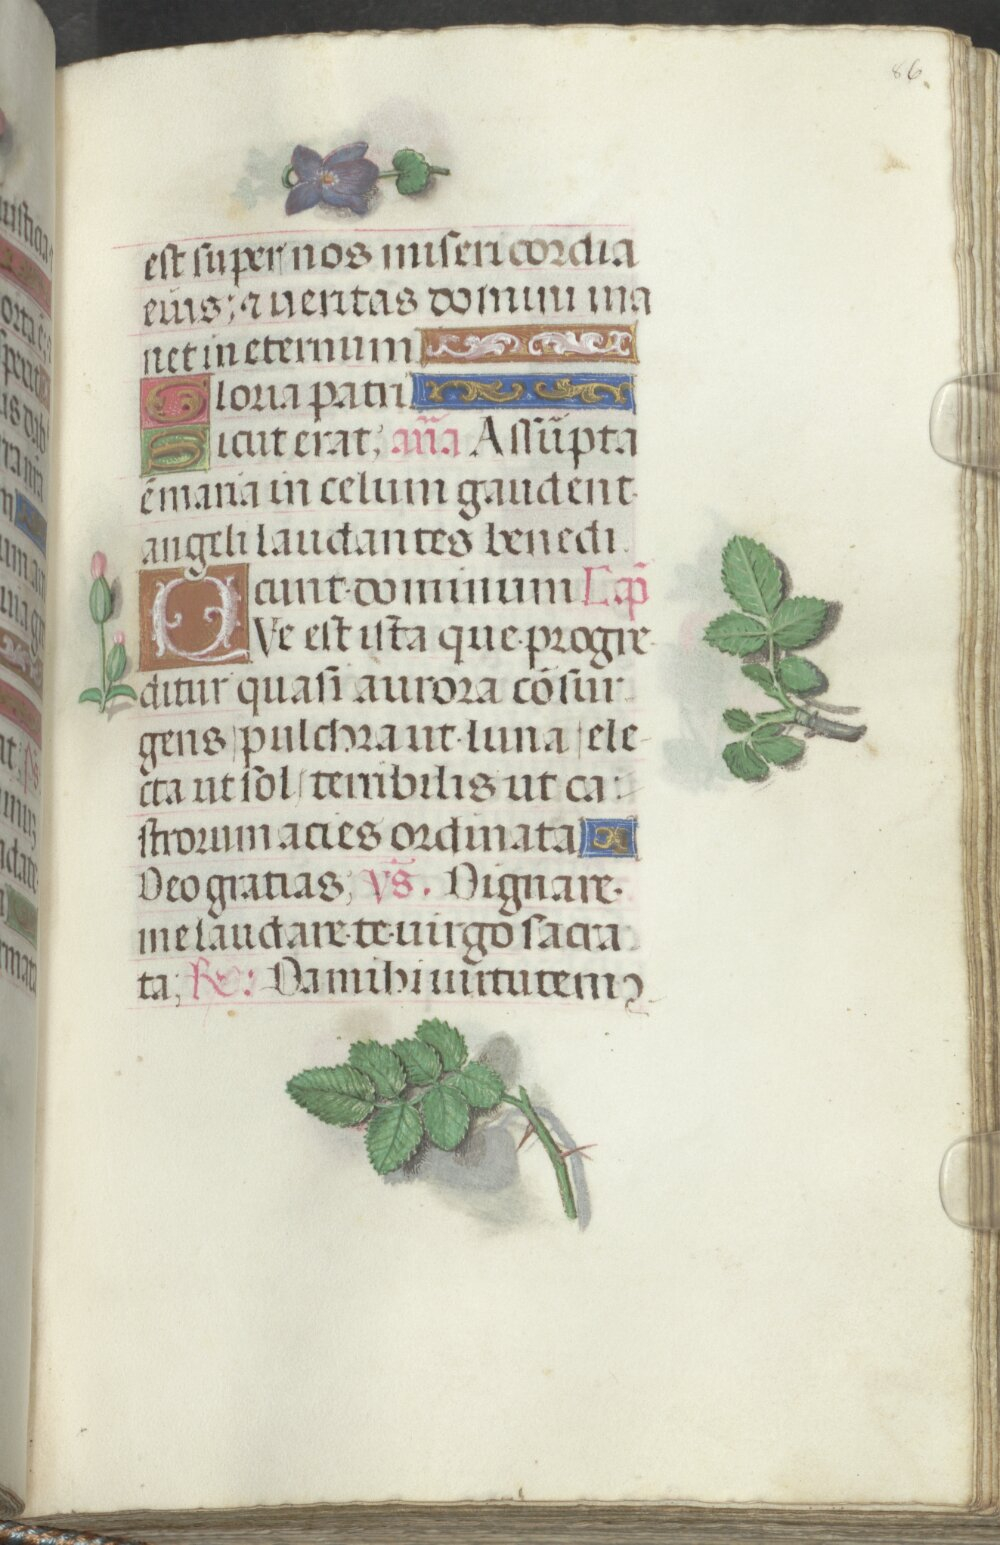 86.
est super nos misericordia
eius; ⁊ ueritas domini ma
net in eternum
Gloria patri
Sicut erat; añа Assũpta
ẽ maria in celum gaudent
angeli laudantes benedi
cunt dominum Cap̃
QVe est ista que progre
ditur quasi aurora cõsur
gens pulchra ut luna ele-
cta ut sol terribilis ut ca
strorum acies ordinata
Deo gratias; v̄s. Dignare
me laudare te uirgo sacra
ta; Re: Da mihi uirtutem